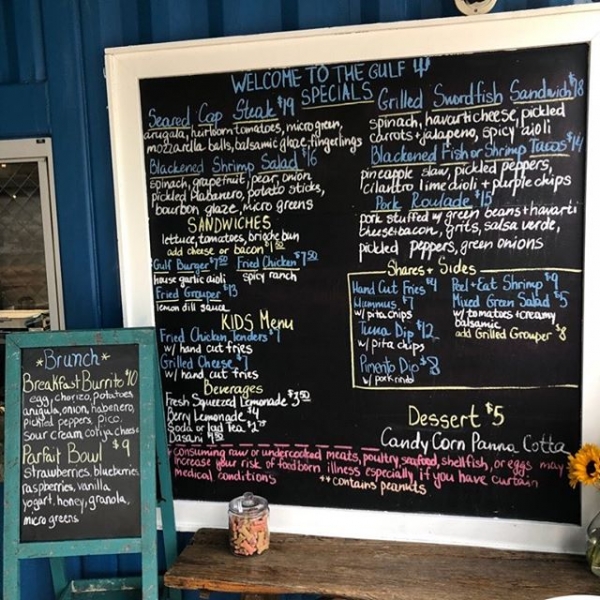 WELCOME TO THE GULF
SPECIALS
Seared Cap Steak $19
arugula, heirloom tomatoes, micro green,
mozzarella balls, balsamic glaze, fingerlings
Blackened Shrimp Salad $16
spinach, grapefruit, pear, onion
pickled habanero, potato sticks,
bourbon glaze, micro greens
SANDWICHES
lettuce, tomatoes, brioche bun
add cheese or bacon $1.50
Gulf Burger $7.50 Fried Chicken $7.50
house garlic aioli spicy ranch
Fried Grouper $13
lemon dill sauce
KIDS Menu
Fried Chicken Tenders $7
w/ hand cut fries
Grilled Cheese $7
w/ hand cut fries
Beverages
Fresh Squeezed Lemonade $3.50
Berry Lemonade $4
Soda or Iced Tea
Dasani
Grilled Swordfish Sandwich $18
spinach, havarti cheese, pickled
carrots + jalapeno, spicy aioli
Blackened Fish or Shrimp Tacos $14
pineapple slaw, pickled peppers,
cilantro lime aioli + purple chips
Pork Roulade $15
pork stuffed w/ green beans + havarti
cheese + bacon, grits, salsa verde,
pickled peppers, green onions
Shares + Sides
Hand Cut Fries $4
Hummus $7
w/ pita chips
Tuna Dip $12
w/ pita chips
Pimento Dip $8
w/ pork rinds
Peel + Eat Shrimp $9
Mixed Green Salad $5
w/ tomatoes + creamy
balsamic
add Grilled Grouper $8
Dessert $5
Candy Corn Panna Cotta
*consuming raw or undercooked meats, poultry, seafood, shellfish, or eggs may
increase your risk of foodborn illness especially if you have curtain
medical conditions **contains peanuts
*Brunch*
Breakfast Burrito $10
egg, chorizo, potatoes
arugula, onion, habenero,
pickled peppers, pico,
sour cream cotija cheese
Parfait Bowl $9
strawberries, blueberries,
raspberries, vanilla
yogurt, honey, granola,
micro greens